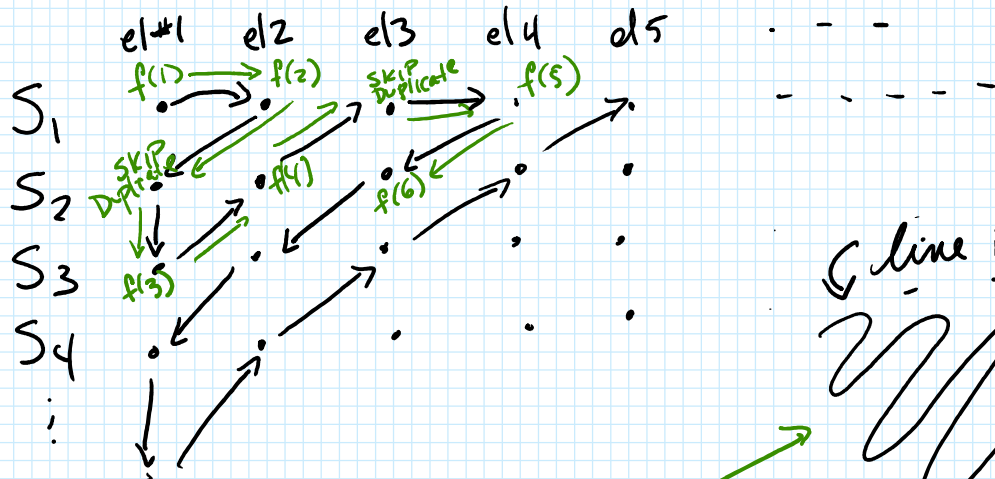 el#1 el2 el3 el4 el5 . - - -
f(1) f(2) SKIP Duplicate f(5)
S1
SKIP Duplicate f(4) f(6)
S2
S3 f(3)
line
S4
⋮